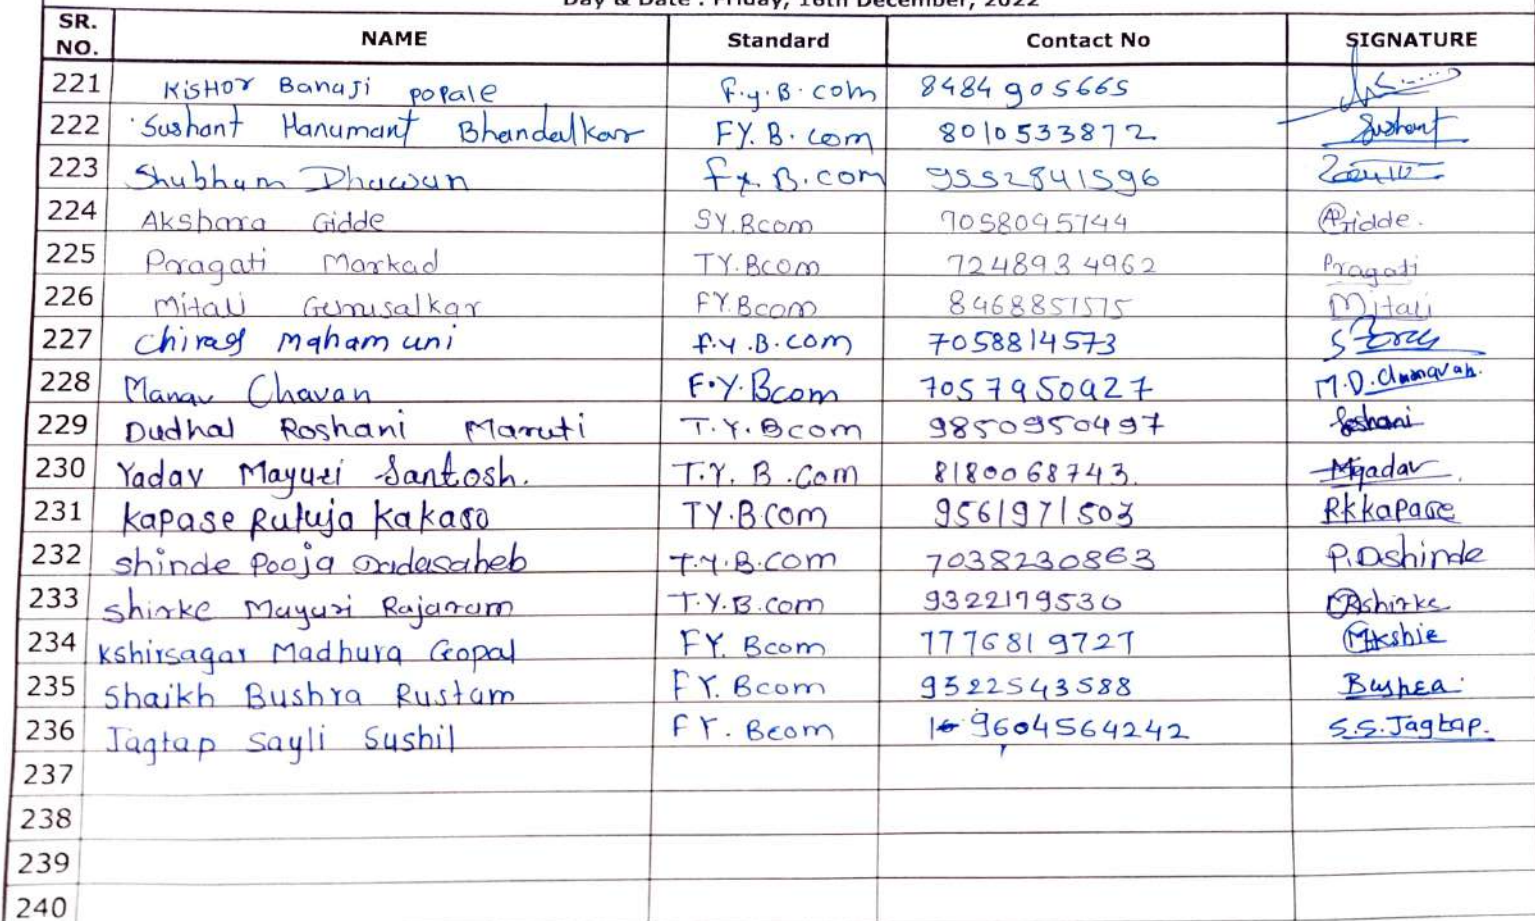 Day & Date : Friday, 16th December, 2022
SR. NO. NAME Standard Contact No SIGNATURE
221 Kishor Banaji popale F.y.B.com 8484905665
222 Sushant Hanumant Bhandalkar FY.B.com 8010533872 Sushant
223 Shubham Dhawan f.y.B.com 9552841596
224 Akshara Gidde SY.Bcom 7058095744 AGidde.
225 Pragati Markad TY.Bcom 7248934962 Pragati
226 Mitali Gunusalkar FY.Bcom 8468851575 Mitali
227 chirag mahamuni f.y.B.com 7058814573
228 Manav Chavan F.Y.Bcom 7057950927 M.D.Chavan.
229 Dudhal Roshani Maruti T.Y.Bcom 9850950497 Roshani
230 Yadav Mayuri Santosh. T.Y.B.Com 8180068743. Myadav
231 kapase Rutuja kakaso TY.B.Com 9561971503 Rkkapase
232 shinde Pooja Dadasaheb T.Y.B.Com 7038230863 P.Dshinde
233 Shirke Mayuri Rajaram T.Y.B.com 9322179530 MRshirke
234 kshirsagar Madhura Gopal FY. Bcom 7776819727
235 Shaikh Bushra Rustam FY. Bcom 9322543588 Bushra
236 Jagtap Sayli Sushil FY. Bcom 9604564242 S.S.Jagtap.
237
238
239
240